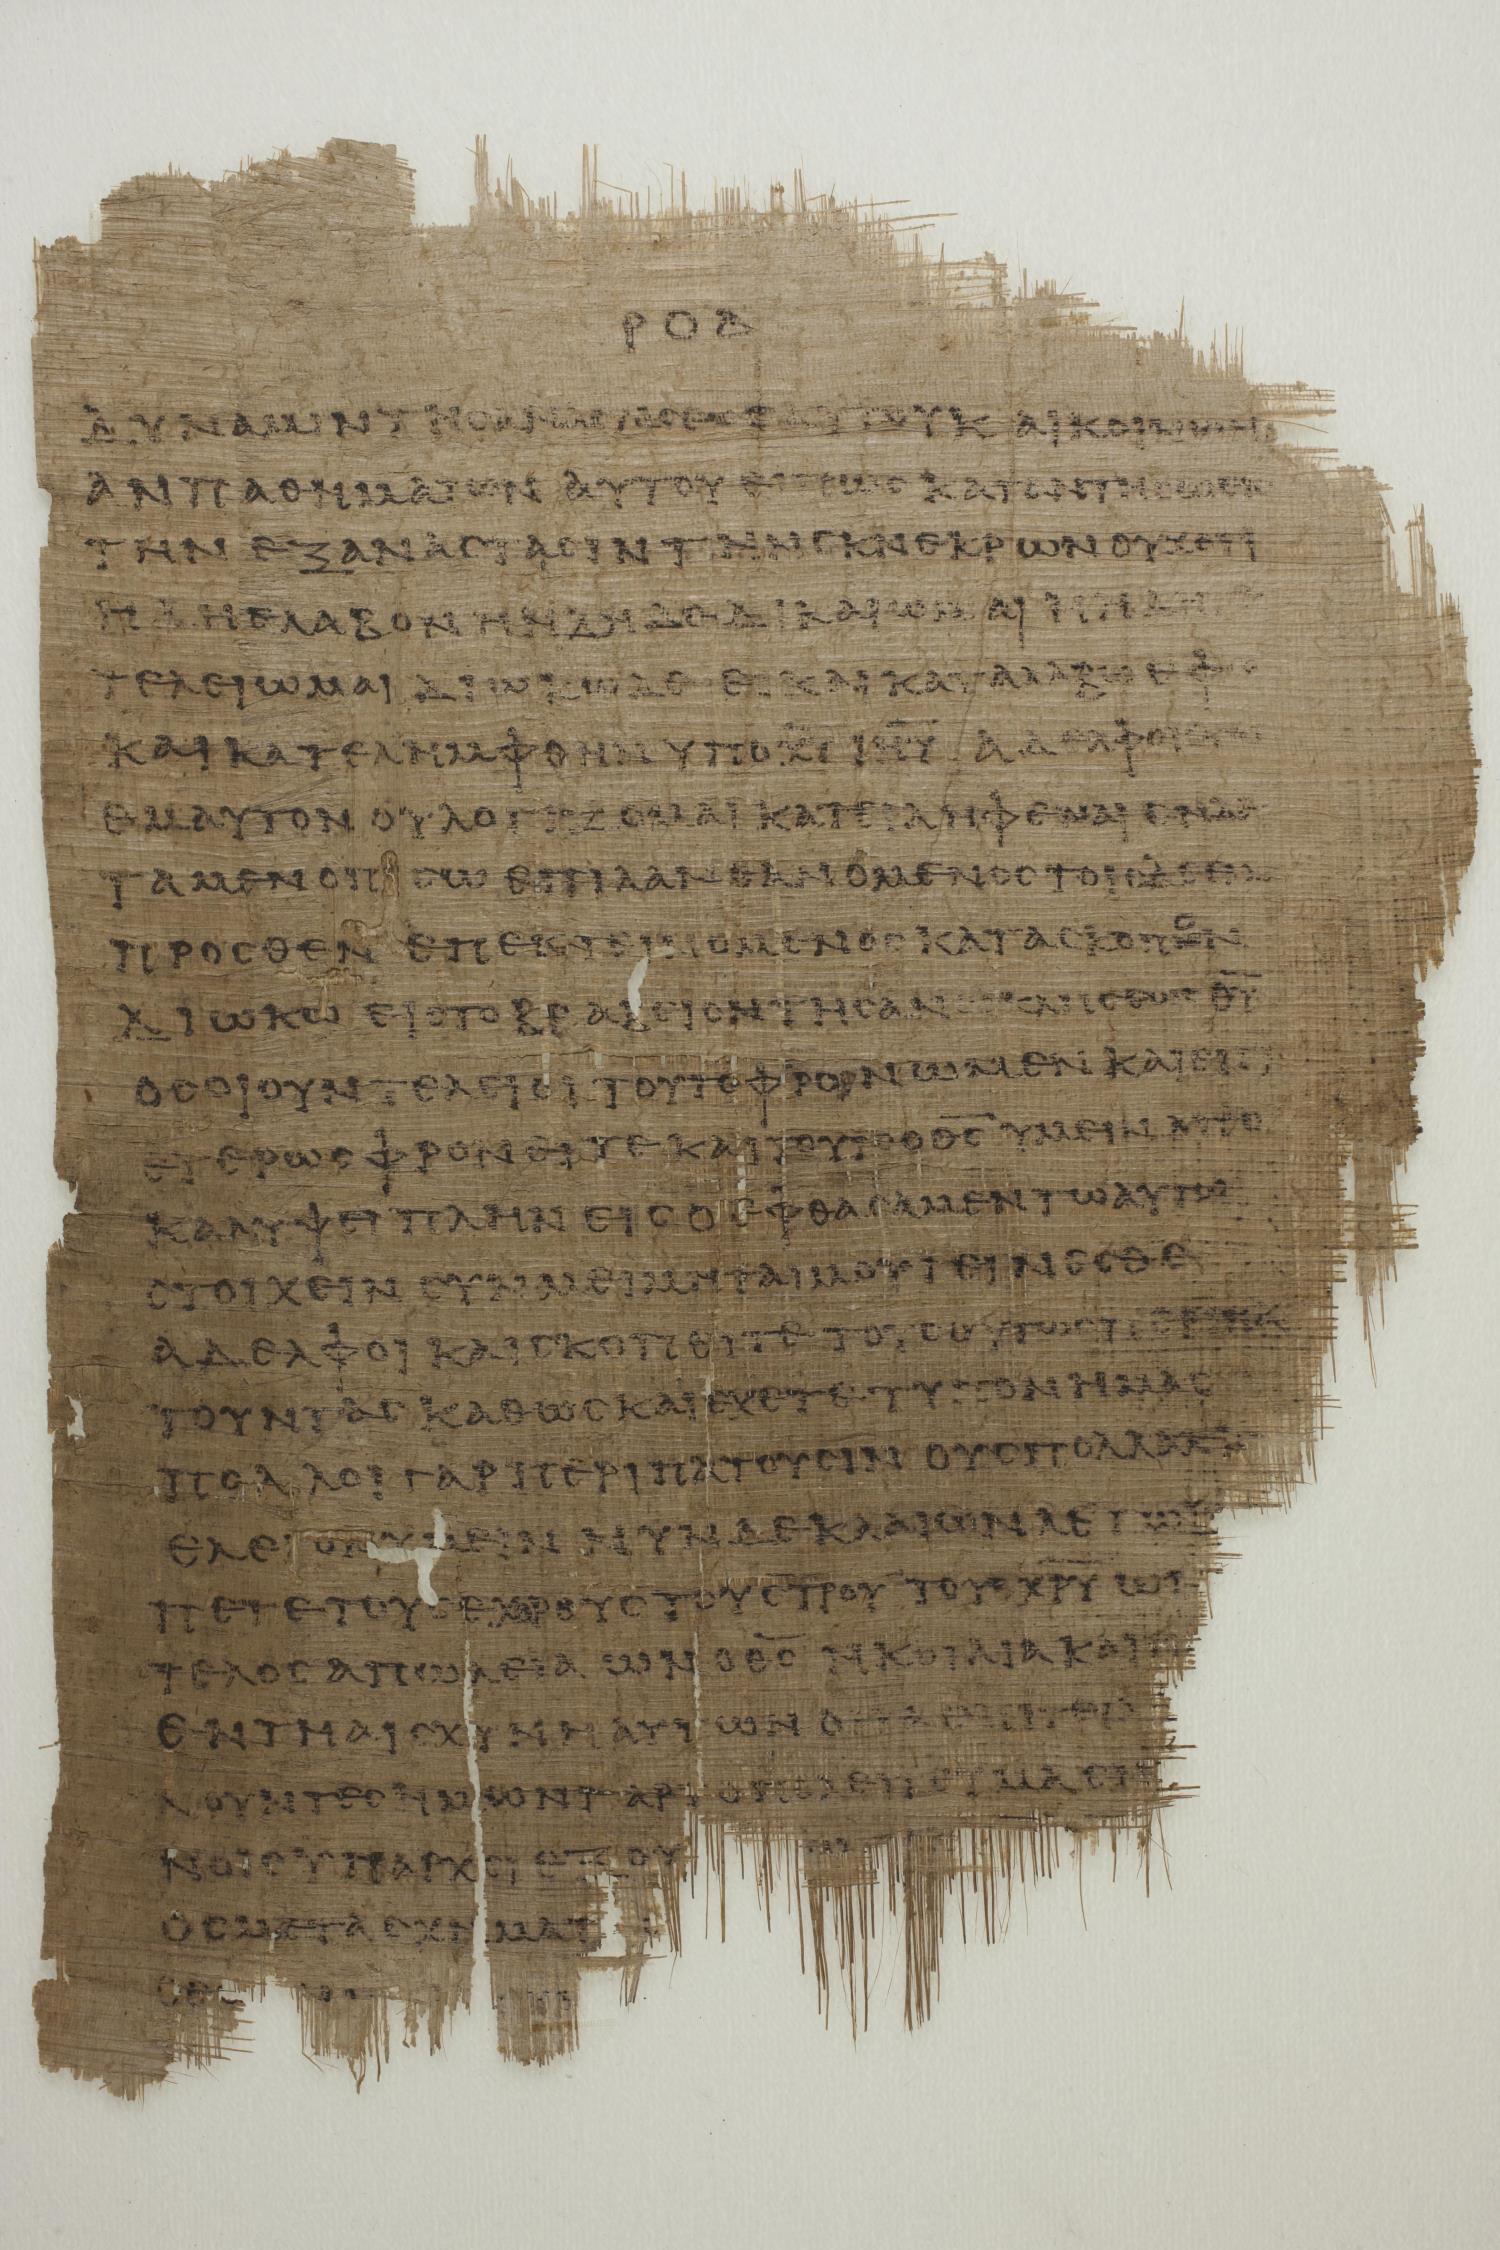 ΡΟΔ
ΔΥΝΑΜΙΝ ΤΗΣ ΑΝΑΣΤΑΣΕΩΣ ΑΥΤΟΥ ΚΑΙ ΚΟΙΝΩΝΙ
ΑΝ ΠΑΘΗΜΑΤΩΝ ΑΥΤΟΥ ΕΙ ΠΩΣ ΚΑΤΑΝΤΗΣΩ ΕΙΣ
ΤΗΝ ΕΞΑΝΑΣΤΑΣΙΝ ΤΗΝ ΕΚ ΝΕΚΡΩΝ ΟΥΧ ΟΤΙ
ΗΔΗ ΕΛΑΒΟΝ Η ΗΔΗ ΔΕΔΙΚΑΙΩΜΑΙ Η ΗΔΗ
ΤΕΛΕΙΩΜΑΙ ΔΙΩΚΩ ΔΕ ΕΙ ΚΑΙ ΚΑΤΑΛΑΒΩ ΕΦ
ΚΑΙ ΚΑΤΕΛΗΜΦΘΗΝ ΥΠΟ ΧΡΥ ΙΗΥ ΑΔΕΛΦΟΙ ΕΓΩ
ΕΜΑΥΤΟΝ ΟΥ ΛΟΓΙΖΟΜΑΙ ΚΑΤΕΙΛΗΦΕΝΑΙ ΕΝ ΔΕ
ΤΑ ΜΕΝ ΟΠΙΣΩ ΕΠΙΛΑΝΘΑΝΟΜΕΝΟΣ ΤΟΙΣ ΔΕ ΕΝ
ΠΡΟΣΘΕΝ ΕΠΕΚΤΕΙΝΟΜΕΝΟΣ ΚΑΤΑ ΣΚΟΠΟΝ
ΔΙΩΚΩ ΕΙΣ ΤΟ ΒΡΑΒΕΙΟΝ ΤΗΣ ΑΝΩ ΚΛΗΣΕΩΣ ΘΥ
ΟΣΟΙ ΟΥΝ ΤΕΛΕΙΟΙ ΤΟΥΤΟ ΦΡΟΝΩΜΕΝ ΚΑΙ ΕΙ ΤΙ
ΕΤΕΡΩΣ ΦΡΟΝΕΙΤΕ ΚΑΙ ΤΟΥΤΟ Ο ΘΣ ΥΜΕΙΝ ΑΠΟ
ΚΑΛΥΨΕΙ ΠΛΗΝ ΕΙΣ Ο ΕΦΘΑΣΑΜΕΝ ΤΩ ΑΥΤΩ
ΣΤΟΙΧΕΙΝ ΣΥΝΜΕΙΜΗΤΑΙ ΜΟΥ ΓΕΙΝΕΣΘΕ
ΑΔΕΛΦΟΙ ΚΑΙ ΣΚΟΠΕΙΤΕ ΤΟΥΣ ΟΥΤΩΣ ΠΕΡΙΠΑ
ΤΟΥΝΤΑΣ ΚΑΘΩΣ ΚΑΙ ΕΧΕΤΕ ΤΥΠΟΝ ΗΜΑΣ
ΠΟΛΛΟΙ ΓΑΡ ΠΕΡΙΠΑΤΟΥΣΙΝ ΟΥΣ ΠΟΛΛΑΚΙΣ
ΕΛΕΓΟΝ ΥΜΕΙΝ ΝΥΝ ΔΕ ΚΛΑΙΩΝ ΛΕΓΩ
ΤΟΥΣ ΕΧΘΡΟΥΣ ΤΟΥ ΣΤΡΟΥ ΤΟΥ ΧΡΥ ΩΝ
ΤΕΛΟΣ ΑΠΩΛΕΙΑ ΩΝ Ο ΘΣ Η ΚΟΙΛΙΑ ΚΑΙ Η
ΕΝ ΤΗ ΑΙΣΧΥΝΗ ΑΥΤΩΝ ΟΙ ΤΑ ΕΠΙΓΕΙΑ
ΝΟΥΝΤΕΣ ΗΜΩΝ ΓΑΡ ΤΟ ΠΟΛΕΙΤΕΥΜΑ ΕΝ
ΝΟΙΣ ΥΠΑΡΧΕΙ ΕΞ ΟΥ
ΟΣ ΜΕΤΑΣΧΗΜΑΤ